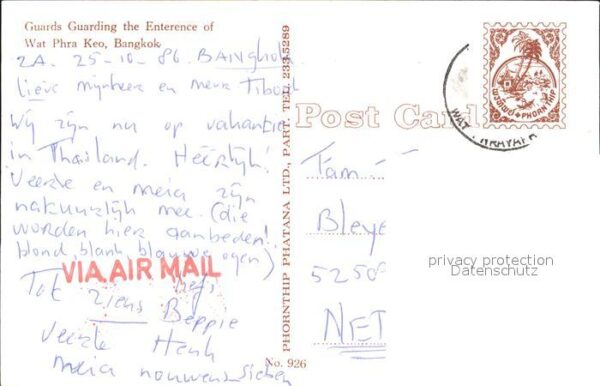 Guards Guarding the Enterence of
Wat Phra Keo, Bangkok
ZA. 25-10-86 BANGkok
Lieve mijnheer en mevr
Wij zijn nu op vakantie
in Thailand. Heerlijk!
Veerle en meia zijn
natuurlijk mee. (die
worden hier aanbeden!
blond, blank blauwe ogen)
VIA AIR MAIL
Tot
ziens Beppie
Veerle Henk
meia
PHORNTHIP PHATANA LTD., PART. TEL. 233-5289
No. 926
Post Card
พรทิพย์ PHORNTHIP
WAT
Fam
Bleye
5250
NET
privacy protection
Datenschutz